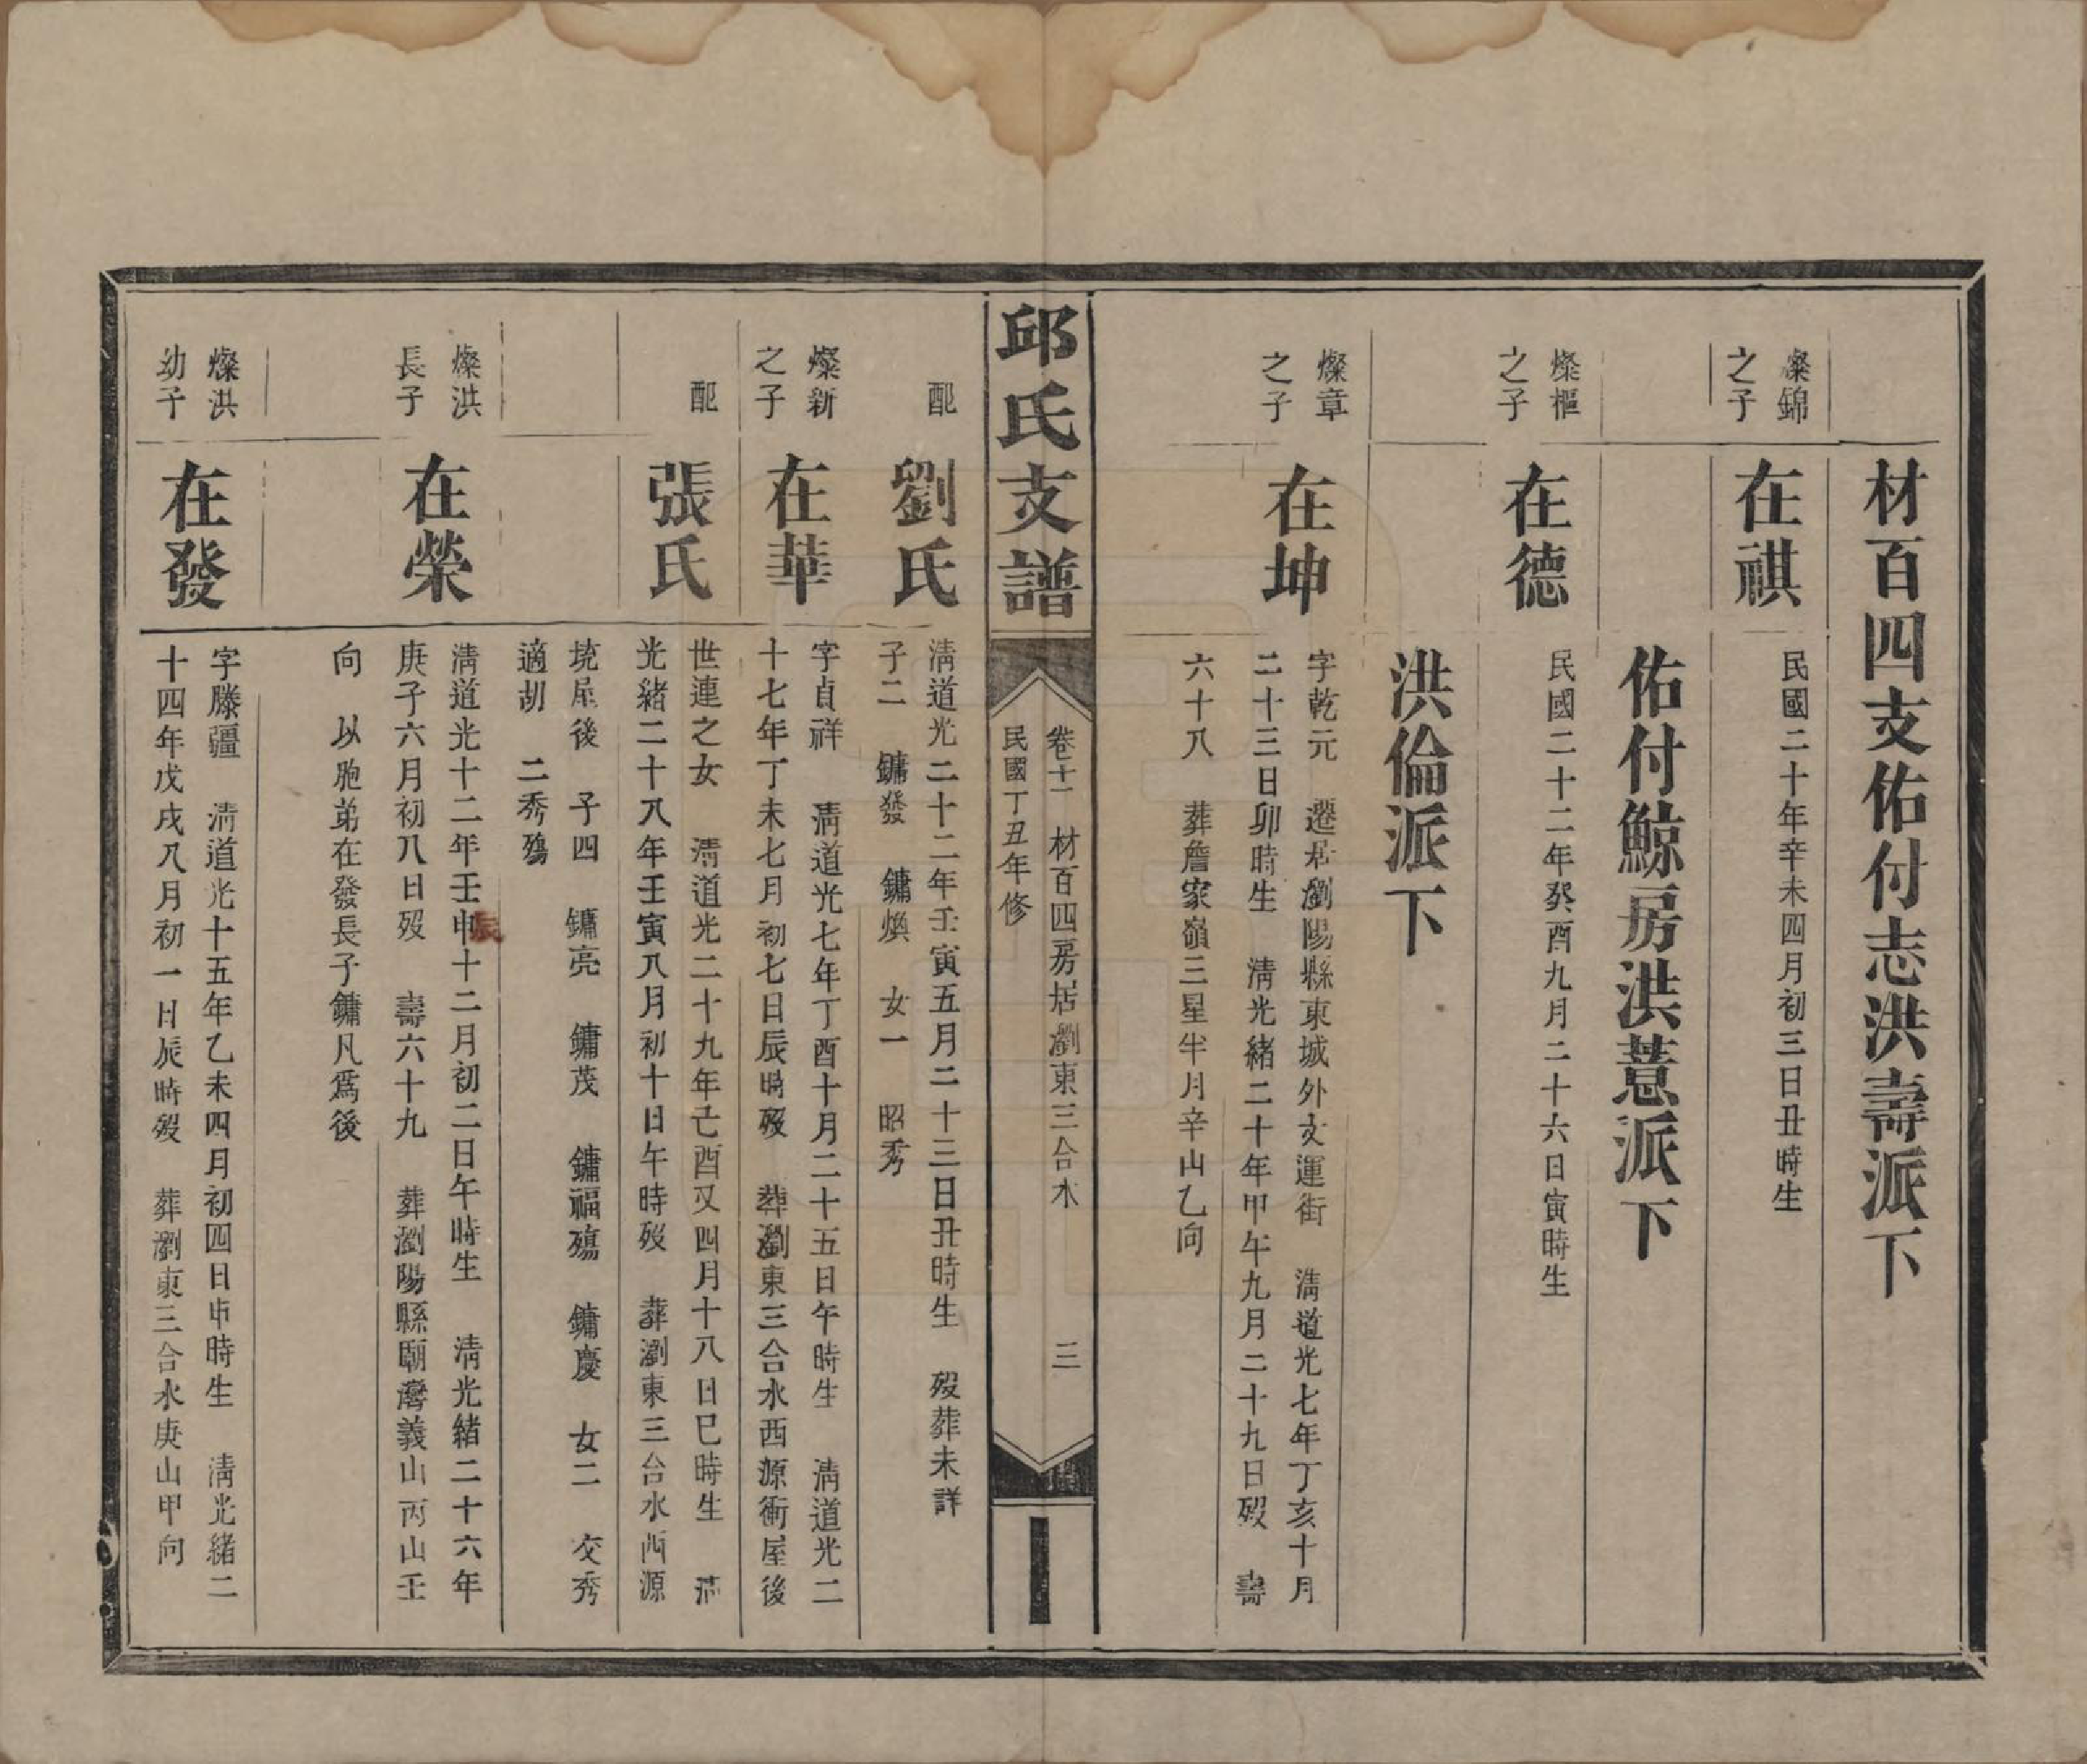 材百四支佑付志洪壽派下
燦錦
之子
在祺
民國二十年辛未四月初三日丑時生
佑付鯨房洪薏派下
燦樞
之子
在德
民國二十二年癸酉九月二十六日寅時生
洪倫派下
燦章
之子
在坤
字乾元　遷居瀏陽縣東城外文運街　清道光七年丁亥十月
二十三日卯時生　清光緒二十年甲午九月二十九日歿　壽
六十八　葬詹家嶺三星半月辛山乙向
邱氏支譜
卷十一　材百四房居瀏東三合水
民國丁丑年修
三
配
劉氏
清道光二十二年壬寅五月二十三日丑時生　歿葬未詳
子二　鏞發　鏞煥　女一　昭秀
燦新
之子
在華
字貞祥　清道光七年丁酉十月二十五日午時生　清道光二
十七年丁未七月初七日辰時歿　葬瀏東三合水西源衝屋後
配
張氏
世連之女　清道光二十九年己酉又四月十八日巳時生　清
光緒二十八年壬寅八月初十日午時歿　葬瀏東三合水西源
境屋後　子四　鏞亮　鏞茂　鏞福殤　鏞慶　女二　交秀
適胡　二秀殤
燦洪
長子
在榮
清道光十二年壬申辰十二月初二日午時生　清光緒二十六年
庚子六月初八日歿　壽六十九　葬瀏陽縣廟灣義山丙山壬
向　以胞弟在發長子鏞凡爲後
燦洪
幼子
在發
字滕疆　清道光十五年乙未四月初四日申時生　清光緒二
十四年戊戌八月初一日辰時歿　葬瀏東三合水庚山甲向